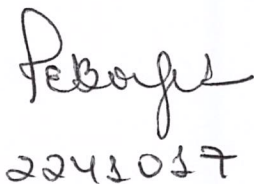 PEBorges
2241017